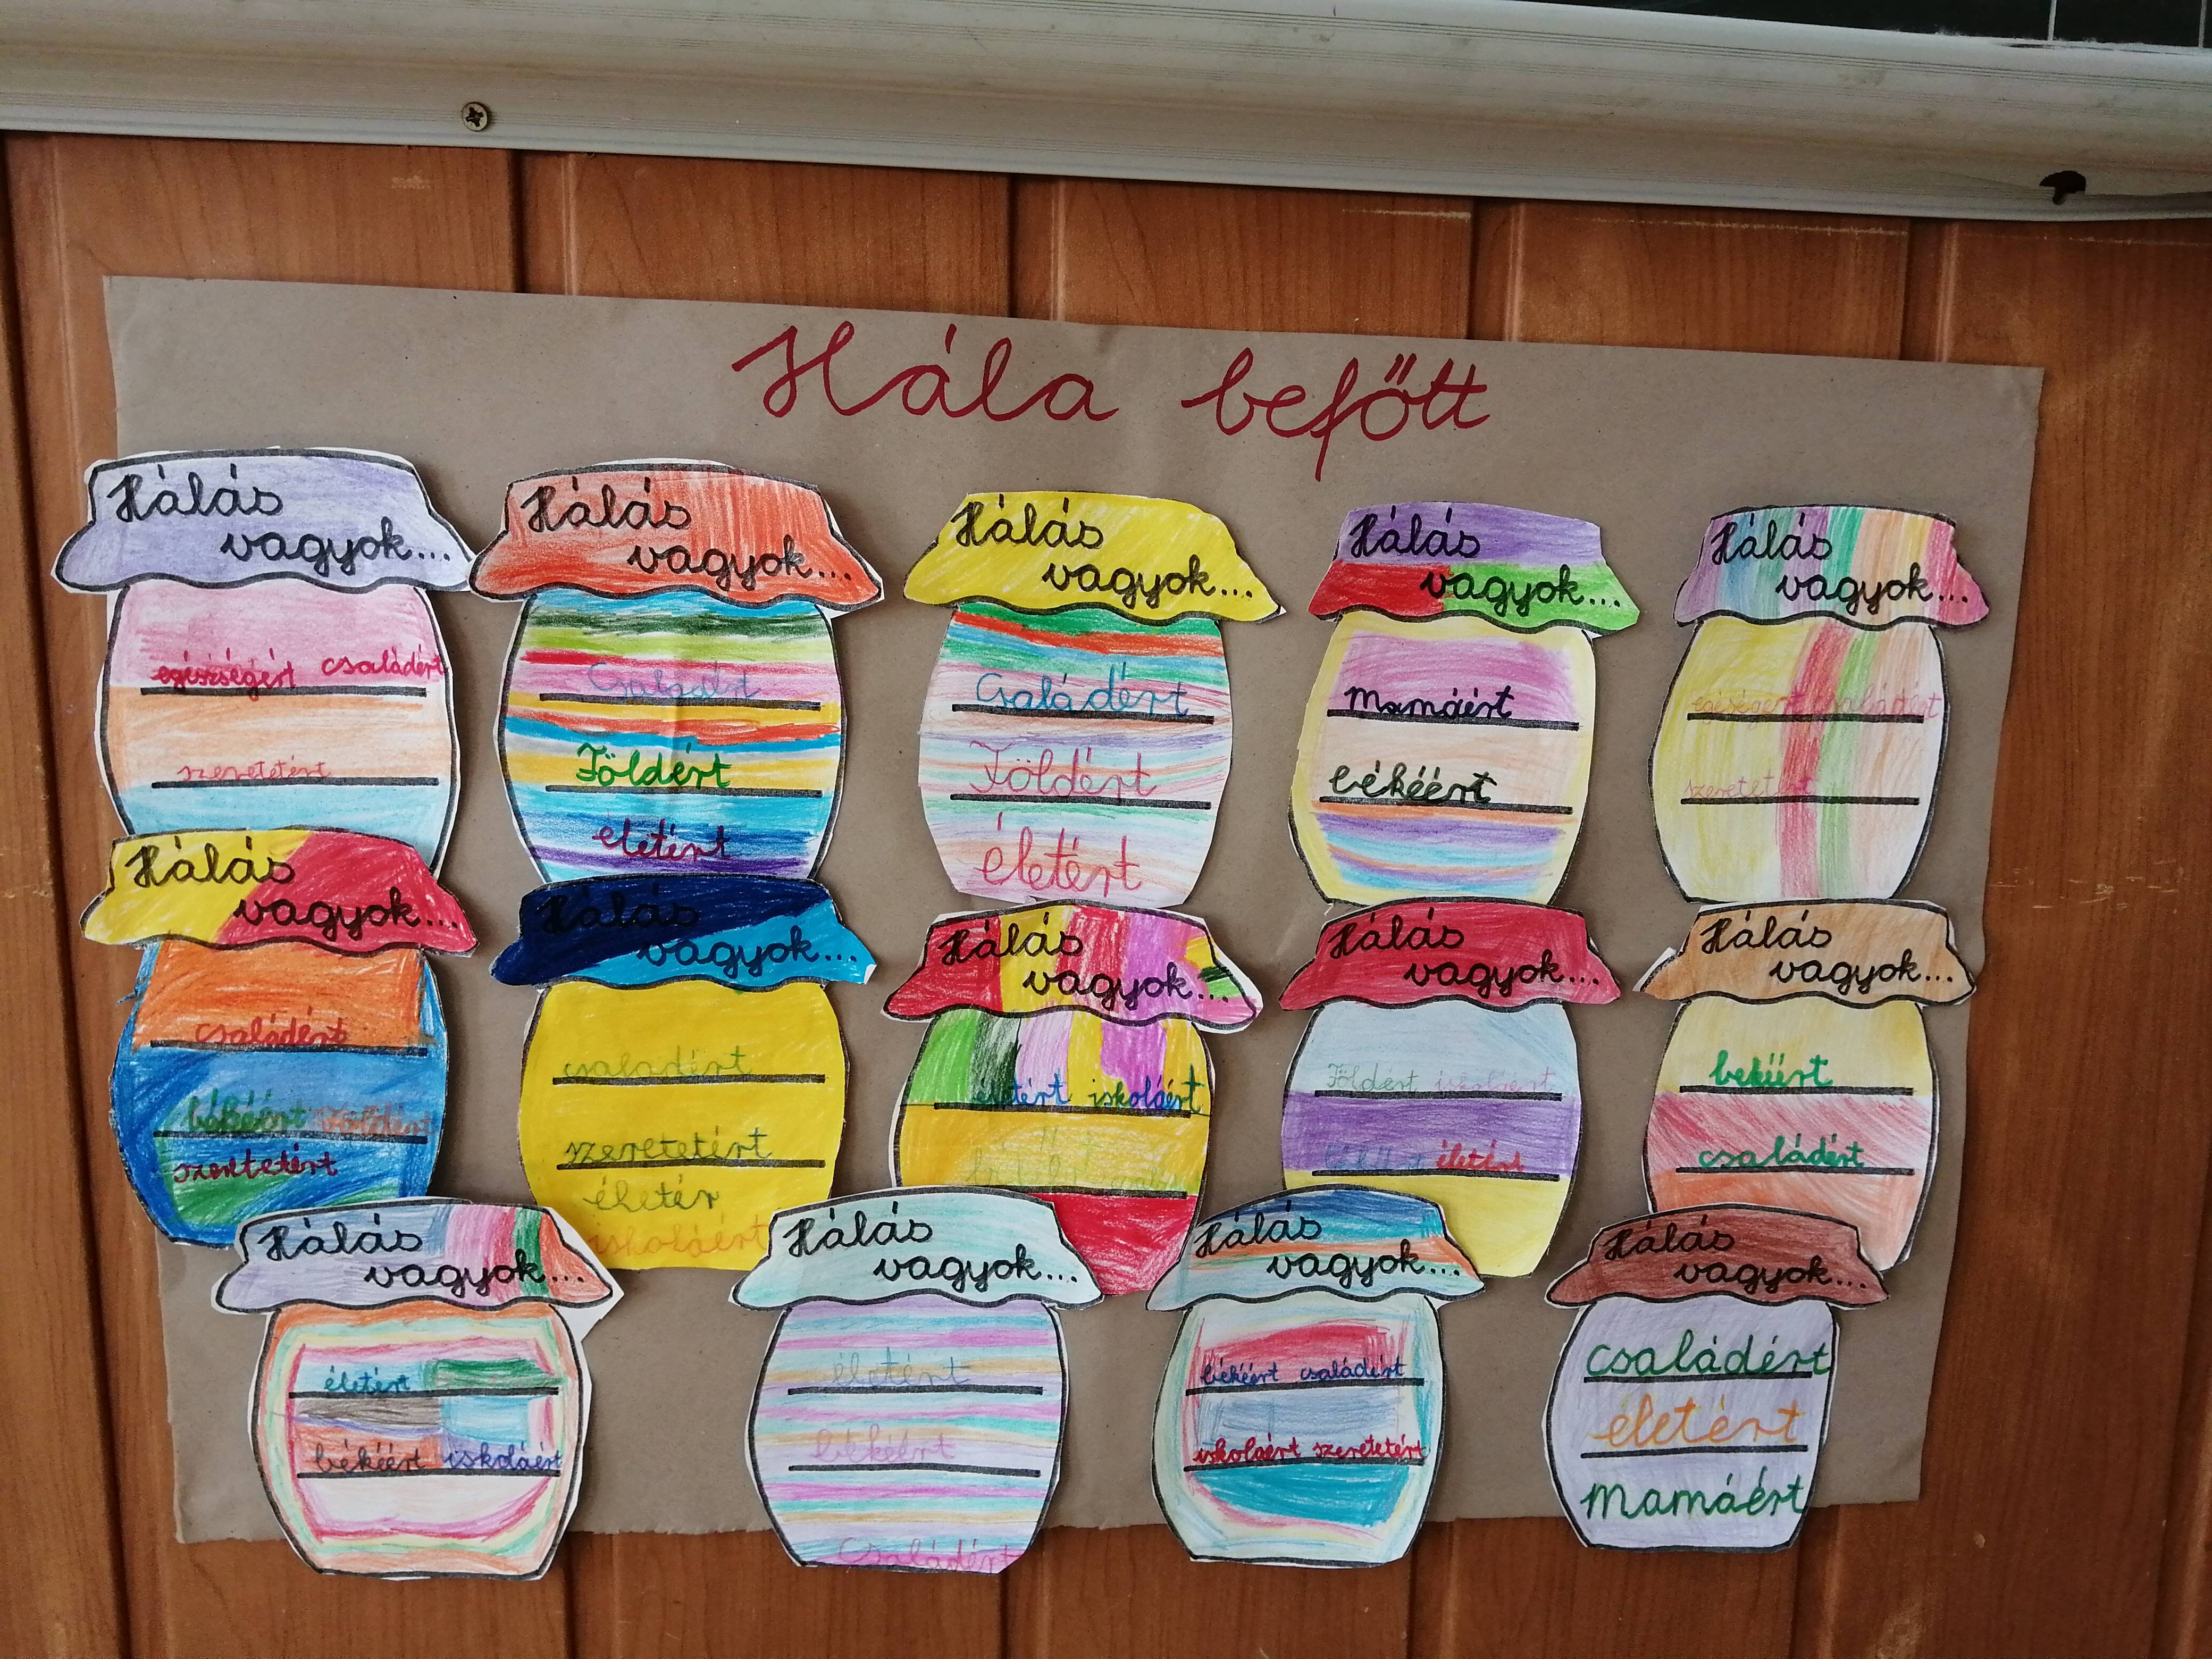 Hála befőtt
Hálás
vagyok...
egészségért családért
szeretetért
Hálás
vagyok...
Családért
Földért
életért
Hálás
vagyok...
Családért
Földért
életért
Hálás
vagyok...
Mamáért
békéért
Hálás
vagyok...
egészségért családért
szeretetért
Hálás
vagyok...
családért
békéért Földért
szeretetért
Hálás
vagyok...
csaladért
szeretetért
életér
iskoláért
Hálás
vagyok...
életért iskoláért
Hálás
vagyok...
Földért iskoláért
békéért életért
Hálás
vagyok...
bekéért
családért
Hálás
vagyok...
életért
békéért iskoláért
Hálás
vagyok...
életért
békéért
Családért
Hálás
vagyok...
békéért családért
iskoláért szeretetért
Hálás
vagyok...
családért
életért
Mamáért